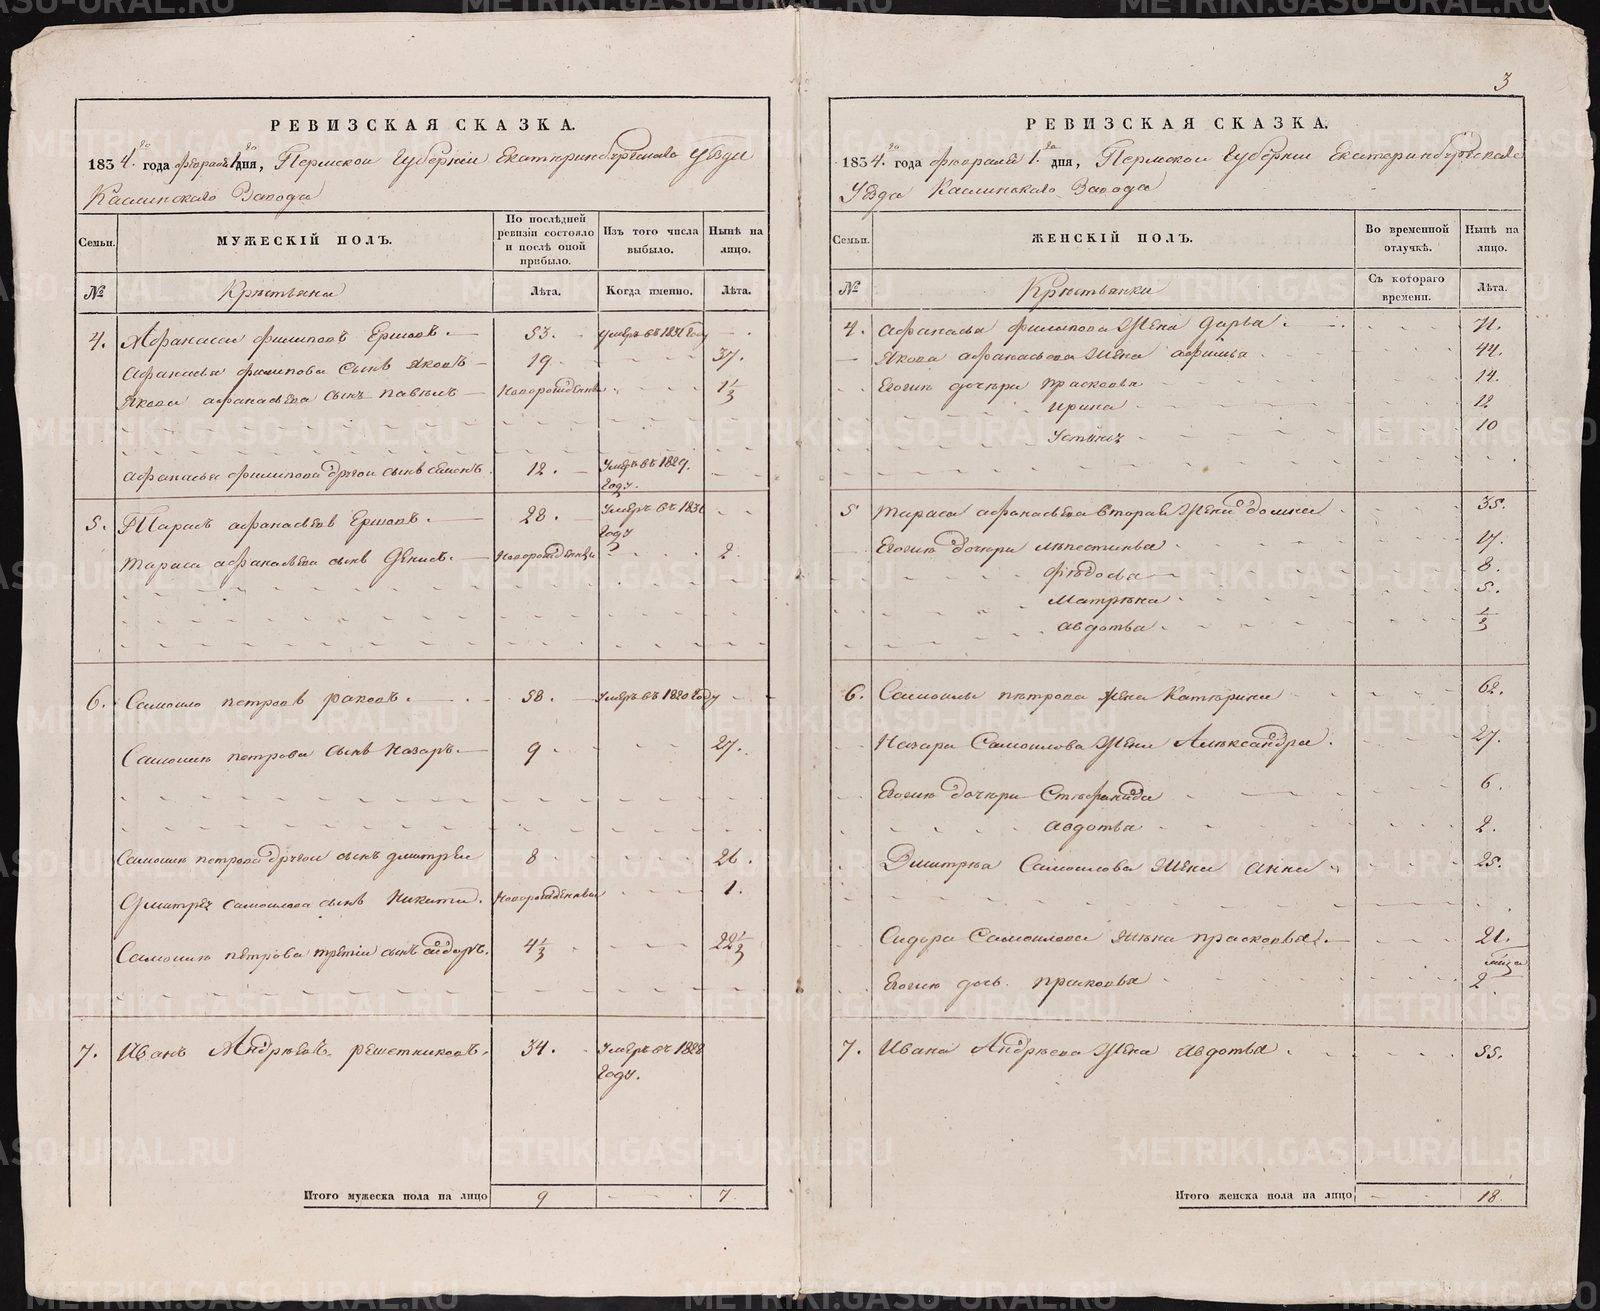 3
РЕВИЗСКАЯ СКАЗКА.
1834го года февраля 1го дня, Пермской Губернии Екатеринбургскаго Уѣзда
Каслинскаго Завода
Семьи. МУЖЕСКІЙ ПОЛЪ. По послѣдней ревизіи состояло и послѣ оной прибыло. Изъ того числа выбыло. Нынѣ на лицо.
№ Крестьяна Лѣта. Когда именно. Лѣта.
4. Афанасеи филиповъ Ершовъ. 53. умеръ въ 1831 году
Афанасья филипова Сынъ Яковъ 19 37.
Якова афанасьева сынъ павелъ Новорожденны 1 1/3
афанасья филипова другои сынъ семенъ 12. умеръ въ 1829. Году.
5. Тарасъ афанасьевъ Ершовъ. 28. умеръ въ 1831 году
Тараса афанасьева сынъ Денисъ. Новорожденны 2
6. Самоило петровъ раковъ. 58. умеръ въ 1820 году
Самоилы петрова сынъ Назаръ. 9 27.
Самоилы петрова другои сынъ дмитреи 8 26.
Дмитрея самоилова сынъ Никита. Новорожденны 1.
Самоилы петрова третiи сынъ сидоръ. 4 1/2 22 1/2
7. Иванъ Андреевъ решетниковъ. 34. умеръ въ 1828 Году.
Итого мужеска пола на лицо 9 7.
РЕВИЗСКАЯ СКАЗКА.
1834.го года февраля 1.го дня, Пермской Губернии Екатеринбургскаго
Уѣзда Каслинскаго Завода
Семьи. ЖЕНСКІЙ ПОЛЪ. Во временной отлучкѣ. Нынѣ на лицо.
№ Крестьянки Съ котораго времени. Лѣта.
4. афанасья филипова Жена дарья 71.
Якова афанасьева Жена афимья 44.
Евогии дочери прасковья 14.
Ирина 12
Устинья 10
5 тараса афанасьева вторая Жена домна 35.
Евогии дочери 17.
федосья 8.
Матрена 5.
авдотья 1/2
6. Самоилы петрова жена Катерина 62.
Назара Самоилова Жена Александра. 27.
Евогии дочери Стефанида 6.
авдотья 2.
Дмитрея Самоилова Жена анна 25.
Сидора Самоилова жена прасковья. 21.
Евогии дочь прасковья 2
7. Ивана Андреева Жена Авдотья 55.
Итого женска пола на лицо 18.
METRIKI.GASO-URAL.RU